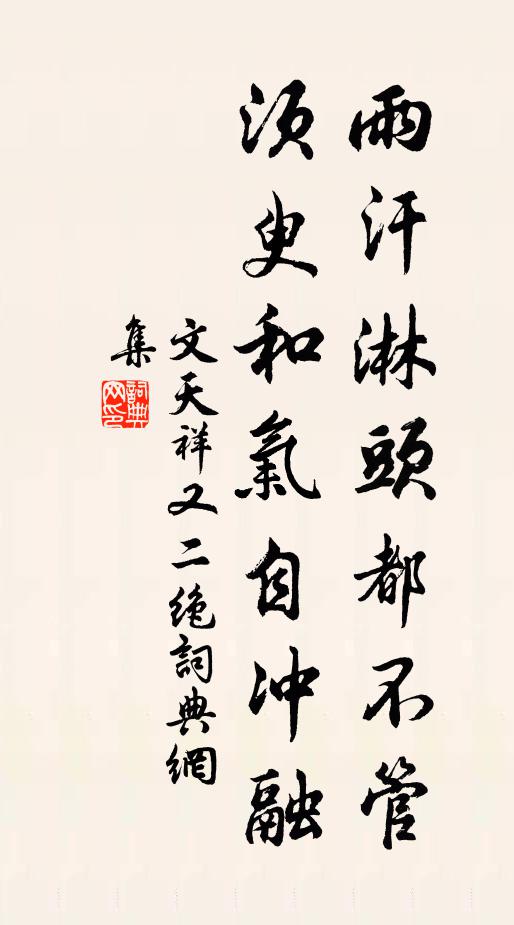 雨汗淋頭都不管
須臾和氣自沖融
文天祥又二絶詞典網
集
詞典
网印